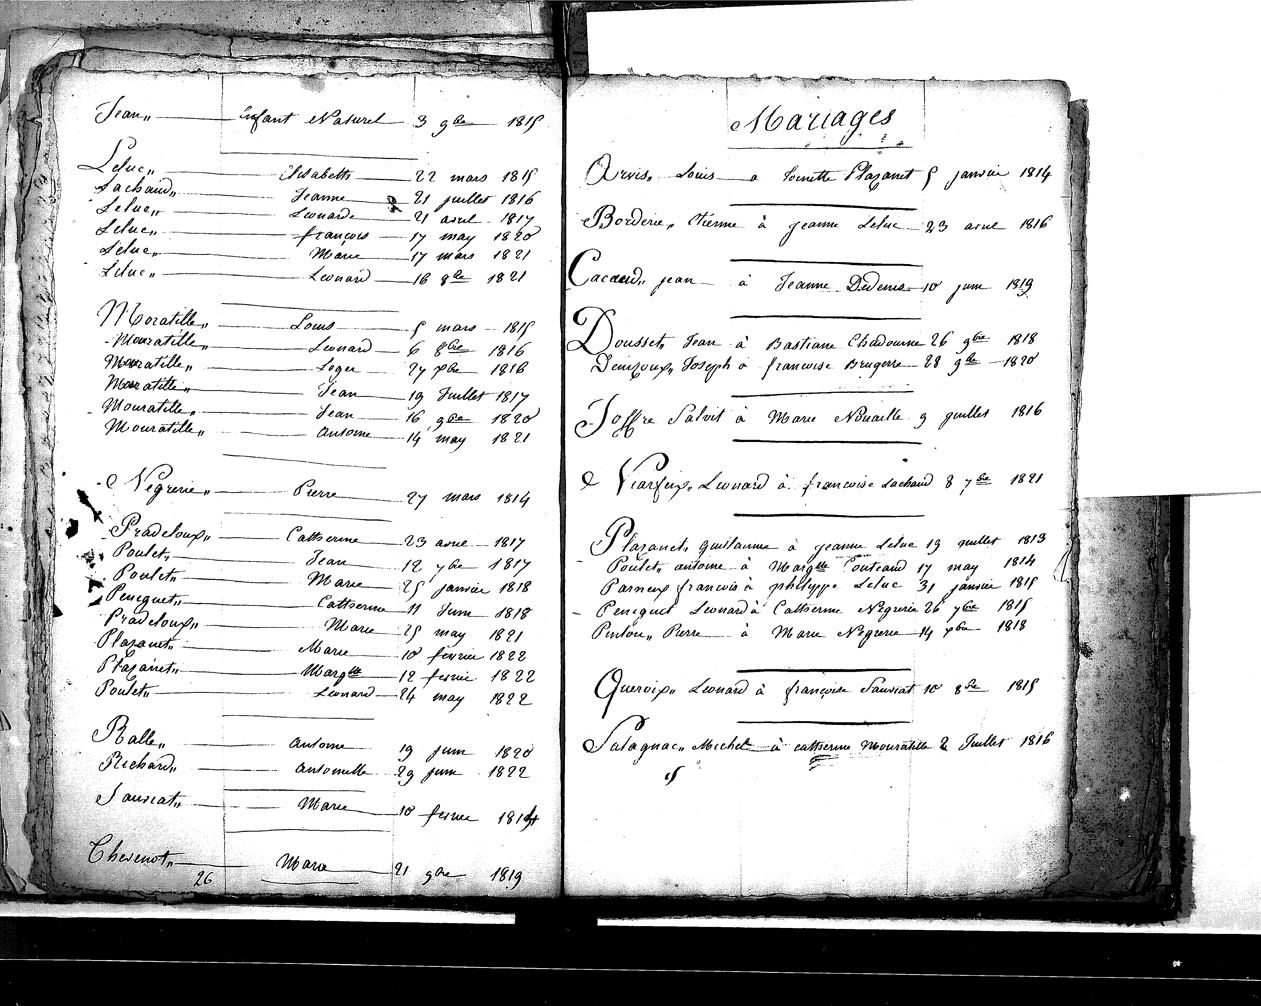 Jean,, Enfant Naturel 3 9bre 1815
Leluc,, Elisabette 22 mars 1815
Lachaud,, Jeanne 21 juillet 1816
Leluc,, Leonarde 21 avril 1817
Leluc,, françois 17 may 1820
Leluc,, Marie 17 mars 1821
Leluc,, Leonard 16 8bre 1821
Moratille,, Louis 5 mars 1815
Mouratille,, Leonard 6 8bre 1816
Mouratille,, Leger 27 xbre 1816
Mouratille,, Jean 19 Juillet 1817
Mouratille,, Jean 16 9bre 1820
Mouratille,, Antoine 14 may 1821
Négrerie,, Pierre 27 mars 1814
Pradeloux,, Catherine 23 avril 1817
Poulet,, Jean 12 7bre 1817
Poulet,, Marie 25 janvier 1818
Penequet,, Catherine 11 Juin 1818
Pradeloux,, Marie 25 may 1821
Plazanet,, Marie 10 février 1822
Plazanet,, Margtte 12 fevrier 1822
Poulet,, Léonard 24 may 1822
Ralle,, Antoine 19 juin 1820
Richard,, Antoinette 29 juin 1822
Sauviat,, Marie 10 fevrier 1814
Chevenot,, Marie 21 9bre 1819
26
Mariages
Arvis,, Louis a Toinette Plazanet 5 janvier 1814
Borderie,, Etienne à jeanne Leluc 23 avril 1816
Cacaud,, jean à Jeanne Dedenis 10 juin 1819
Dousset,, Jean à Bastiane Chadourne 26 9bre 1818
Denizoux,, Joseph à francoise Brugerre 28 9bre 1820
Joffre Salvit à Marie Nouaille 9 juillet 1816
Viarfeix,, Leonard à francoise Lachaud 8 7bre 1821
Plazanet,, guillaume à jeanne Leluc 19 juillet 1813
Poulet,, antoine à Margtte Couteaud 17 may 1814
Parneix francois à philippe Leluc 31 janvier 1815
Penequet Leonard à Catherine Negrerie 26 7bre 1815
Pintou,, Pierre à Marie Négrerie 14 xbre 1818
Queroix,, Leonard à françoise Sauviat 10 8bre 1815
Salagnac,, Michel à catherine Mouratille 2 Juillet 1816
15